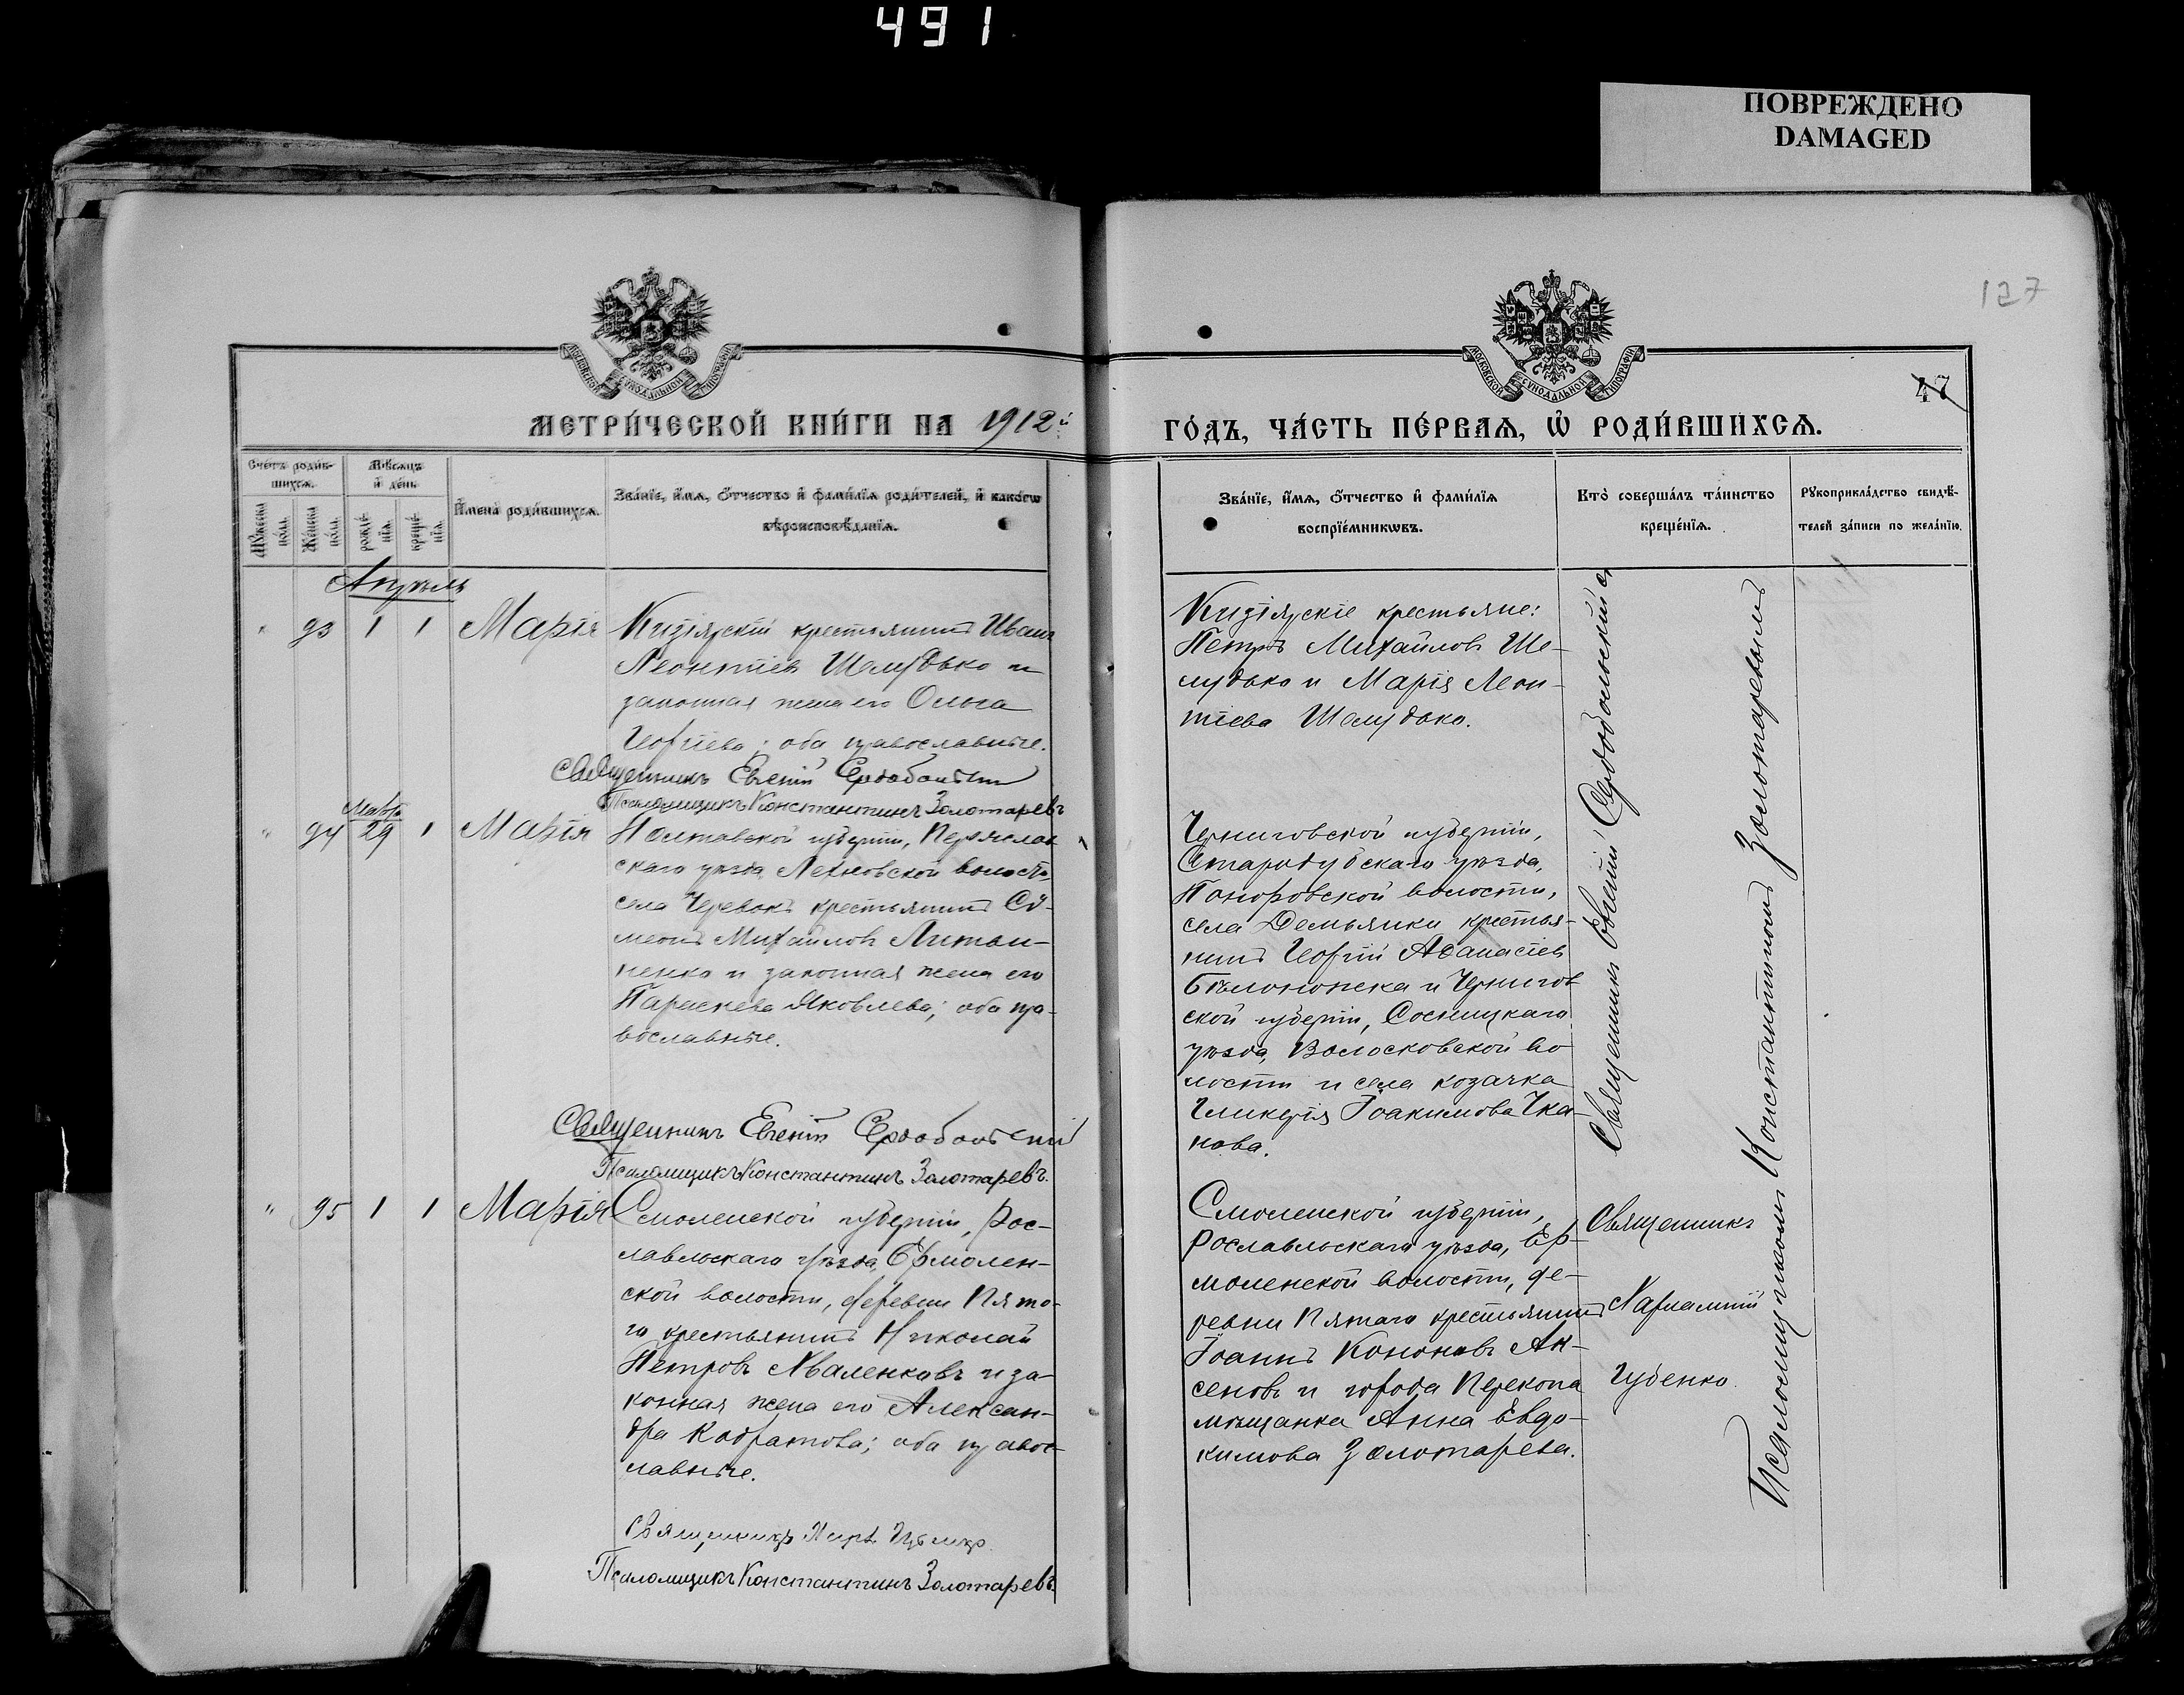 491
ПОВРЕЖДЕНО
DAMAGED
127
МОСКОВСКОЙ СѴНОДАЛЬНОЙ ТИПОГРАФІИ
МОСКОВСКОЙ СѴНОДАЛЬНОЙ ТИПОГРАФІИ
47
МЕТРИ́ЧЕСКОЙ КНИ́ГИ НА 1912й
ГО́ДЪ, ЧА́СТЬ ПЕ́РВАѦ, Ѡ҆ РОДИ́ВШИХСѦ.
Сче́тъ роди́в-
шихсѧ.
Мꙋ́жеска по́ла.
Же́нска по́ла.
Мѣ́сѧцъ
и҆ де́нь
рожде́-
нїѧ.
креще́-
нїѧ.
И҆мена̀ роди́вшихсѧ.
Зва́нїе, и҆́мѧ, ѻ҆́тчество и҆ фами́лїѧ роди́телей, и҆ како́гѡ
вѣроисповѣ́данїѧ.
Зва́нїе, и҆́мѧ, ѻ҆́тчество и҆ фами́лїѧ
воспрїе́мникѡвъ.
Кто̀ соверша́лъ та́инство
креще́нїѧ.
Рꙋкоприкла́дство свидѣ́-
телей за́писи по жела́нїю.
Апрѣль
" 93 1 1 Марія
Кизіярскій крестьянинъ Иванъ
Леонтіевъ Шелудько и
законная жена его Ольга
Георгіева; оба православные.
Священникъ Евгеній Сердобольскій
Псаломщикъ Константинъ Золотаревъ
Кизіярскіе крестьяне:
Петръ Михайловъ Ше-
лудько и Марія Леон-
тіева Шелудько.
Священникъ Евгеній Сердобольскій съ
Псаломщикомъ Константиномъ Золотаревымъ
Марта
" 94 29 1 Марія
Полтавской губерніи, Переяслав
скаго уѣзда,
села Черевокъ крестьянинъ Си-
меонъ Михайловъ Литви-
ненко и законная жена его
Параскева Яковлева; оба пра-
вославные.
Священникъ Евгеній Сердобольскій
Псаломщикъ Константинъ Золотаревъ.
Черниговской губерніи,
Стародубскаго уѣзда,
Понуровской волости,
села Демьянки крестья-
нинъ Георгій Аѳанасіевъ
Бѣлоножка и Чернигов
ской губерніи, Сосницкаго
уѣзда, Волосковской во
лости и села козачка
Гликерія Іоакимова
" 95 1 1 Марія
Смоленской губерніи, Рос-
лавльскаго уѣзда, Ермолен-
ской волости, деревни Пято-
го крестьянинъ Николай
Петровъ Хваленковъ и за-
конная жена его Алексан-
дра Кодратова; оба правос-
лавные.
Священникъ
Псаломщикъ Константинъ Золотаревъ.
Смоленской губерніи,
Рославльскаго уѣзда, Ер-
моленской волости, де-
ревни Пятаго крестьянинъ
Іоаннъ Кононовъ Ак-
сеновъ и города Перекопа
мѣщанка Анна Евдо-
кимова Золотарева.
Священникъ
Харлампій
Губенко.